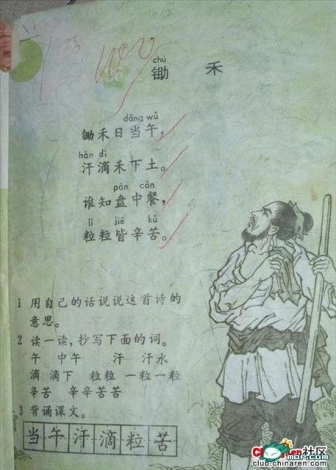 chú
锄 禾
dāng wǔ
锄禾日当午，
hàn dī
汗滴禾下土。
pán cān
谁知盘中餐，
lì jiē kǔ
粒粒皆辛苦。
1 用自己的话说说这首诗的
意思。
2 读一读，抄写下面的词。
午 中午 汗 汗水
滴 滴下 粒粒 一粒一粒
辛苦 辛辛苦苦
3 背诵课文。
当 午 汗 滴 粒 苦
社区
club.chinaren.com